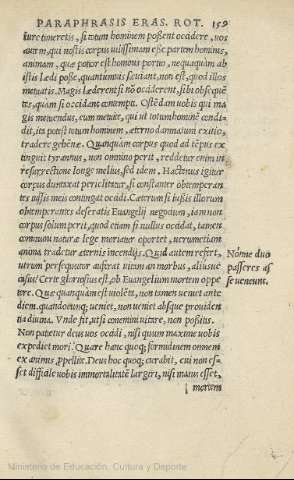 PARAPHRASIS ERAS. ROT. 159
iure timeretis, si totum hominem possent occidere, vos
autem, qui nostis corpus vilissimam esse partem hominis,
animam, quæ potior est hominis portio, nequaquam ab
istis lædi posse, quantumuis sæuiant, non est, quod illos
metuatis. Magis læderent si nõ occiderent, sibi obsequẽ
tes, quàm si occidant contemptis. Ostẽdam vobis qui ma
gis metuendus, eum metuite, qui vt totum hominẽ condi-
dit, ita potest totum hominem, æterno damnatum exitio,
tradere gehenæ. Quanquàm corpus quod ad tẽpus ex
tinguit tyrannus, non omnino perit, reddetur enim in
resurrectione longe melius, sed idem. Hactenus igitur
corpus duntaxat periclitatur, si constanter obtemperan
tes iussis meis contingat occidi. Cæterum si iussis illorum
obtemperantes deseratis Euangelij negotium, iam non
corpus solum perit, quod etiam si nullus occidat, tamen
communi naturæ lege moriatur oportet, verumetiam
anima tradetur æternis incendijs. Quid autem refert,
vtrum persequutor auferat vitam an morbus, aliusue
casus? Certe gloriosius est, ob Euangelium mortem oppe
tere. Quæ quanquam est violẽta, non tamen veniet ante
diem. quandocunq; veniet, non veniet absque prouiden
tia diuina. Vnde fit, vt si conemini vitare, non possitis.
Non patietur deus vos occidi, nisi quum maxime vobis
expediet mori. Quare hanc quoq; formidinem omnem
ex animis ꝓpellite. Deus hoc quoq; curabit, cui non es-
set difficile vobis immortalitatẽ largiri, nisi maius esset,
mortem
Nõnne duo
passeres as
se veneunt.
Ministerio de Educación, Cultura y Deporte